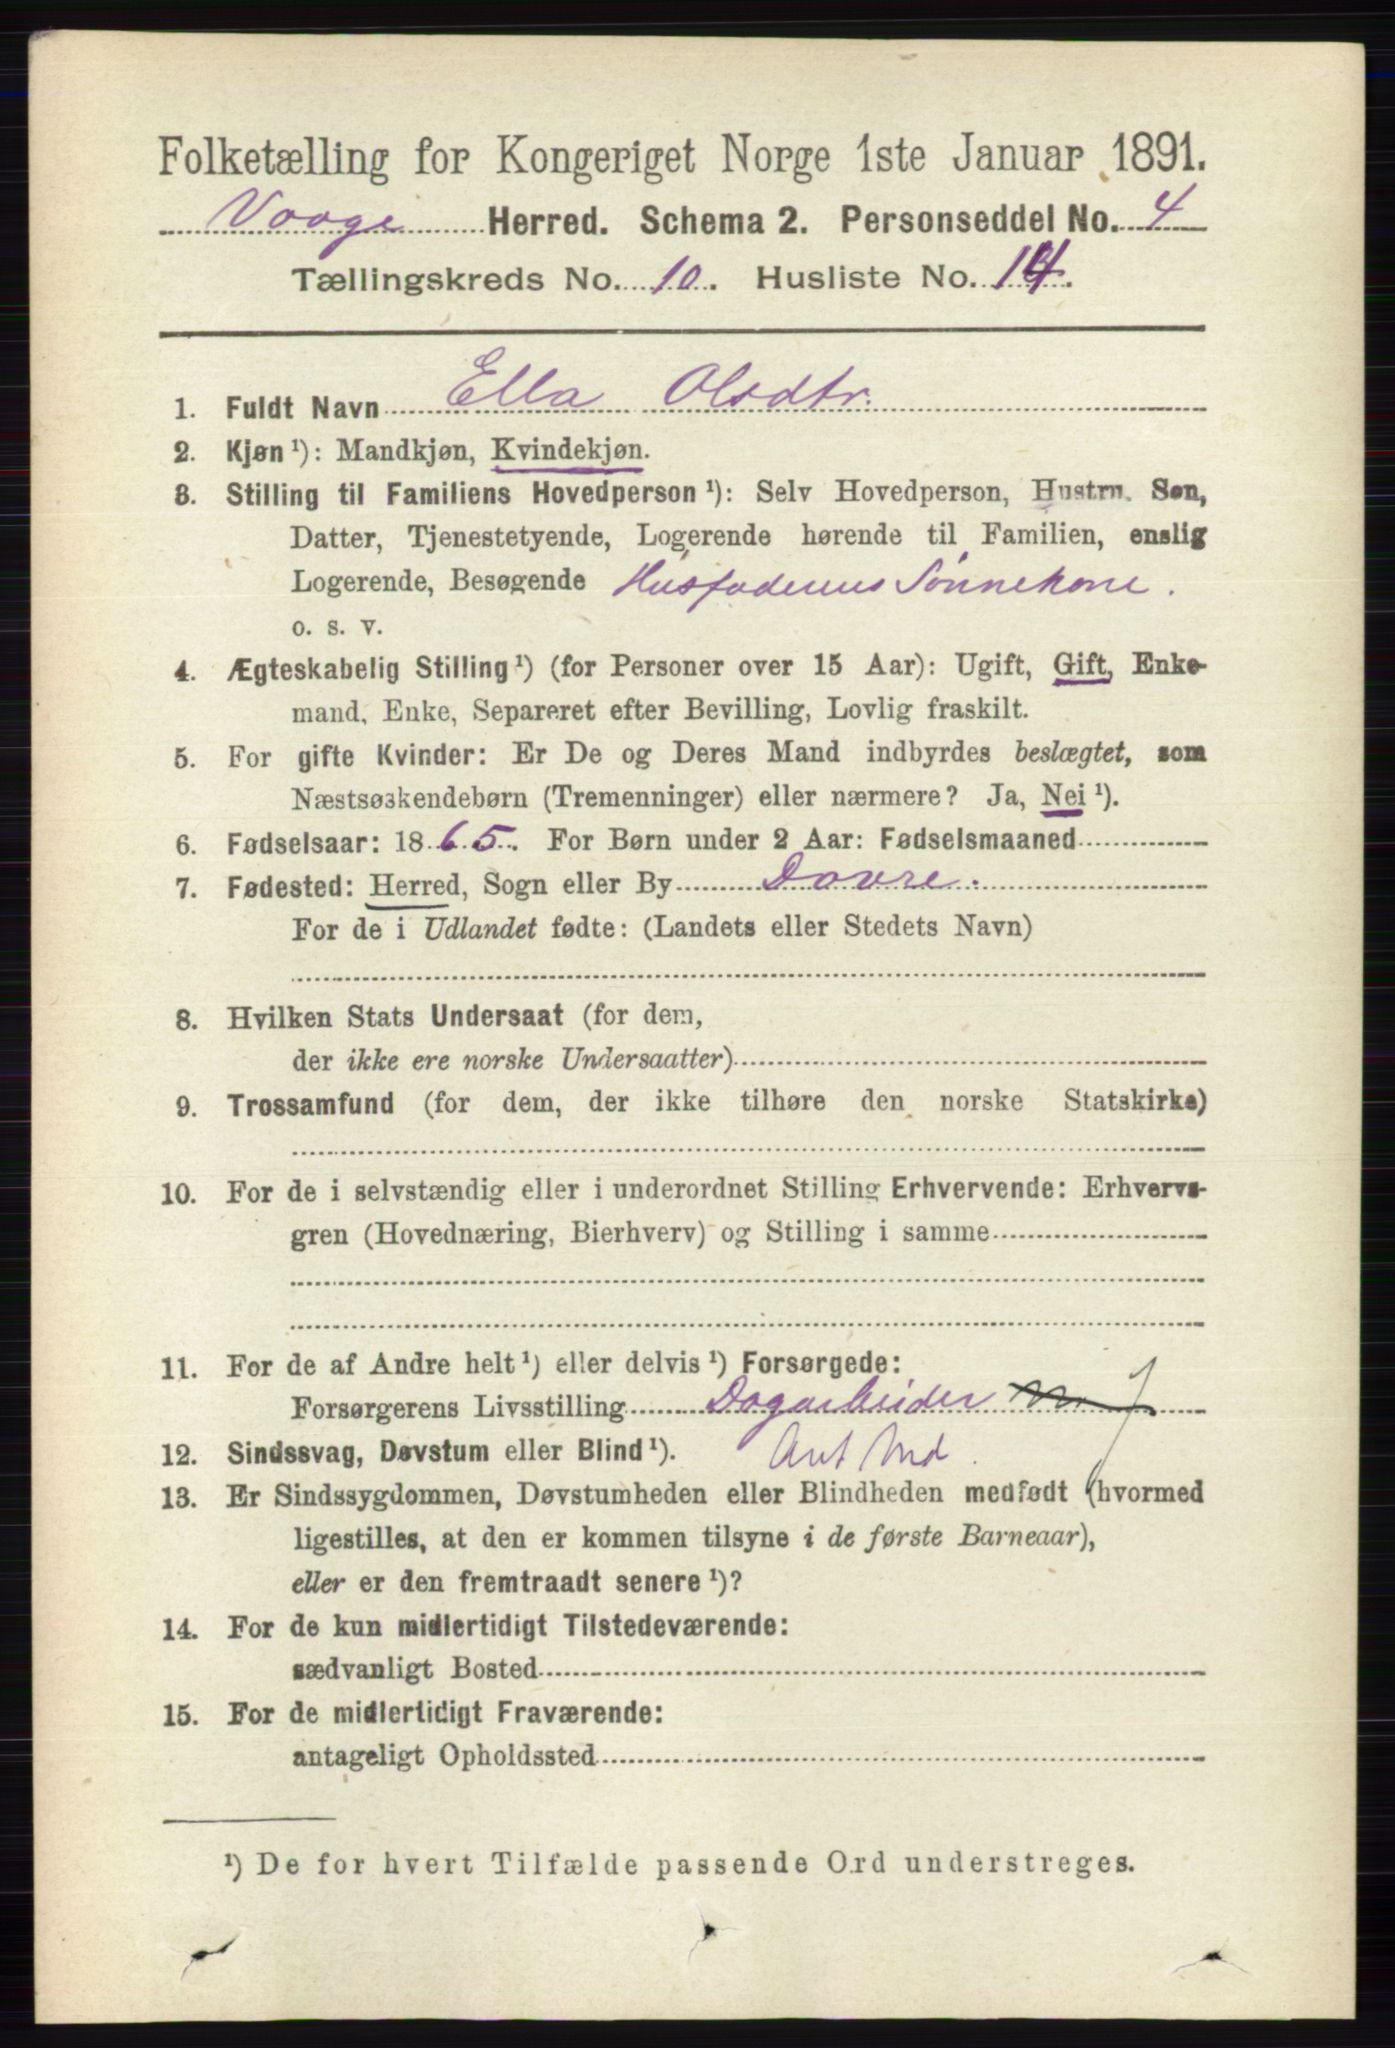 Folketælling for Kongeriget Norge 1ste Januar 1891.
Vaage Herred. Schema 2. Personseddel No. 4
Tællingskreds No. 10. Husliste No. 14.
1. Fuldt Navn Ella Olsdtr.
2. Kjøn ¹): Mandkjøn, Kvindekjøn.
3. Stilling til Familiens Hovedperson ¹): Selv Hovedperson, Hustru, Søn,
Datter, Tjenestetyende, Logerende hørende til Familien, enslig
Logerende, Besøgende Husfaderens Sønnekone.
o. s. v.
4. Ægteskabelig Stilling ¹) (for Personer over 15 Aar): Ugift, Gift, Enke-
mand, Enke, Separeret efter Bevilling, Lovlig fraskilt.
5. For gifte Kvinder: Er De og Deres Mand indbyrdes beslægtet, som
Næstsøskendebørn (Tremenninger) eller nærmere? Ja, Nei ¹).
6. Fødselsaar: 1865. For Børn under 2 Aar: Fødselsmaaned
7. Fødested: Herred, Sogn eller By Dovre.
For de i Udlandet fødte: (Landets eller Stedets Navn)
8. Hvilken Stats Undersaat (for dem,
der ikke ere norske Undersaatter)
9. Trossamfund (for dem, der ikke tilhøre den norske Statskirke)
10. For de i selvstændig eller i underordnet Stilling Erhvervende: Erhvervs-
gren (Hovednæring, Bierhverv) og Stilling i samme
11. For de af Andre helt ¹) eller delvis ¹) Forsørgede:
Forsørgerens Livsstilling Dagarbeider
12. Sindssvag, Døvstum eller Blind ¹).
13. Er Sindssygdommen, Døvstumheden eller Blindheden medfødt (hvormed
ligestilles, at den er kommen tilsyne i de første Barneaar),
eller er den fremtraadt senere ¹)?
14. For de kun midlertidigt Tilstedeværende:
sædvanligt Bosted
15. For de midlertidigt Fraværende:
antageligt Opholdssted
¹) De for hvert Tilfælde passende Ord understreges.